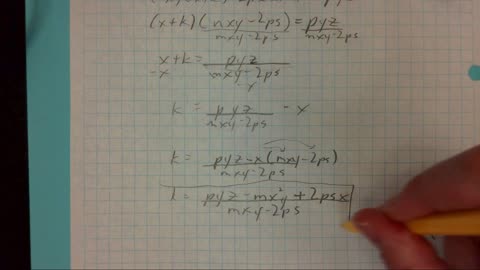 (x+k)(nxy-2ps)/(mxy-2ps) = pyz/(mxy-2ps)
x+k = pyz/(mxy-2ps)
-x -x
k = pyz/(mxy-2ps) - x
k = (pyz-x(mxy-2ps))/(mxy-2ps)
k = (pyz-mx²y+2psx)/(mxy-2ps)